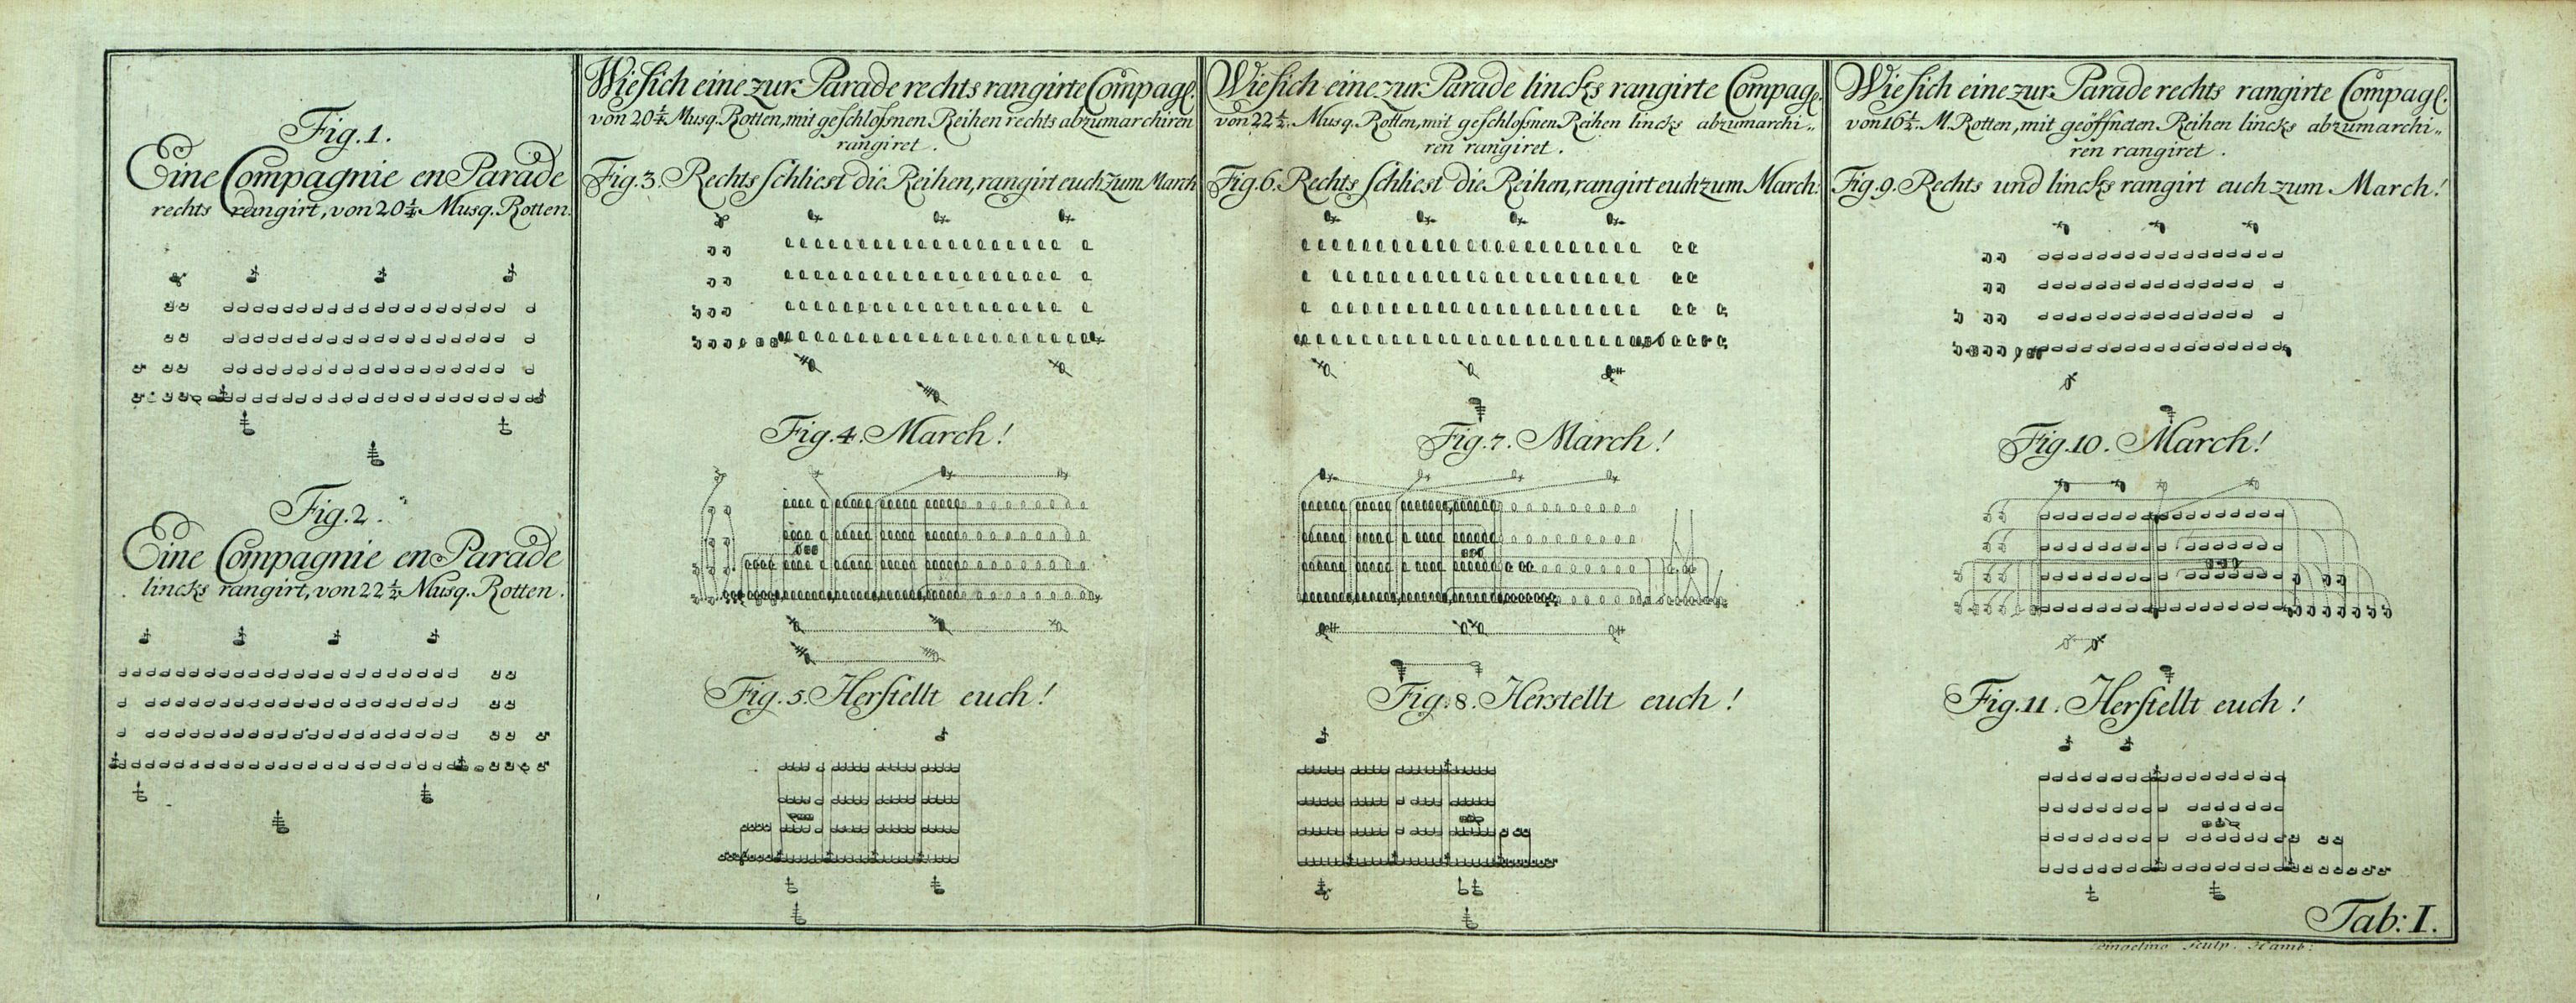 Fig. 1.
Eine Compagnie en Parade
rechts rangirt, von 20¼ Musq. Rotten.
Fig. 2.
Eine Compagnie en Parade
lincks rangirt, von 22½ Musq. Rotten.
Wie sich eine zur Parade rechts rangirte Compagē.
von 20¼ Musq. Rotten, mit geschloßnen Reihen rechts abzumarchiren
rangiret.
Fig. 3. Rechts schliest die Reihen, rangirt euch zum March
Fig. 4. March!
Fig. 5. Herstellt euch!
Wie sich eine zur Parade lincks rangirte Compagē.
von 22½ Musq. Rotten, mit geschloßnen Reihen lincks abzumarchi„
ren rangiret.
Fig. 6. Rechts schliest die Reihen, rangirt euch zum March.
Fig. 7. March!
Fig. 8. Herstellt euch!
Wie sich eine zur Parade rechts rangirte Compagē.
von 16¼ M. Rotten, mit geöffneten Reihen lincks abzumarchi„
ren rangiret.
Fig. 9. Rechts und lincks rangirt euch zum March!
Fig. 10. March!
Fig. 11. Herstellt euch!
Tab: I.
Sculp. Hamb: